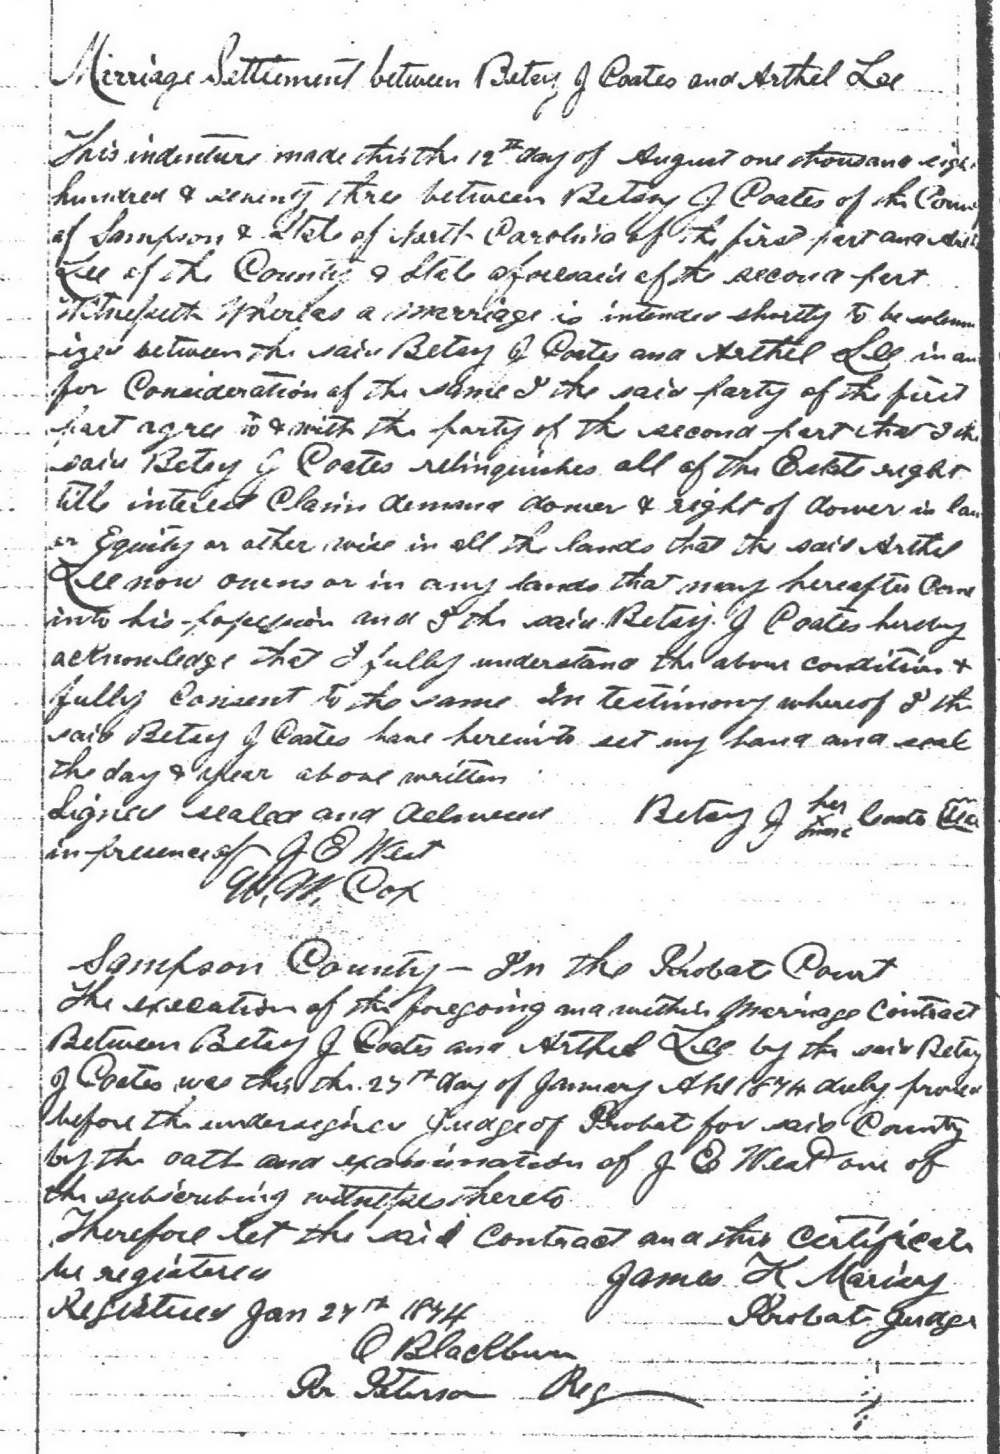 Mirriage Settlement between Betsy J Coates and Arthel Lee
This indenture made this the 12th day of August one thousand eigh
hundred & seventy three between Betsey J Coates of the Coun
of Sampson & State of North Carolina of the first part and Arth
Lee of the County & State aforesaid of the second part
Witnesseth Whereas a marriage is intended shortly to be solemn
ized between the said Betsy J Coates and Arthel Lee in an
for Consideration of the same I the said party of the first
part agree to & with the party of the second part that I the
said Betsy J Coates relinquishes all of the Estate right
title interest Claim demand dower & right of dower in law
or Equity or other wise in all the lands that the said Arthel
Lee now owns or in any lands that may hereafter Come
into his possession and I the said Betsy J Coates hereby
acknowledge that I fully understand the above condition &
fully Consent to the same In testimony whereof I the
said Betsy J Coates have hereinto set my hand and seal
the day & year above written
Signed sealed and delivered Betsy J her x mark Coats Seal
in presence of J E West
W. M. Cox
Sampson County - In the Probate Court
The execution of the foregoing and within Marriage Contract
Between Betsy J Coates and Arthel Lee by the said Betsy
J Coates was this the 27th day of January AD 1874 duly proven
before the undersigned Judge of Probat for said County
by the oath and examination of J E West one of
the subscribing witnesses thereto
Therefore let the said Contract and this Certificate
be registered James K Marisey
Registered Jan 27th 1874 Probate Judge
O Blackburn
Per Peterson Reg